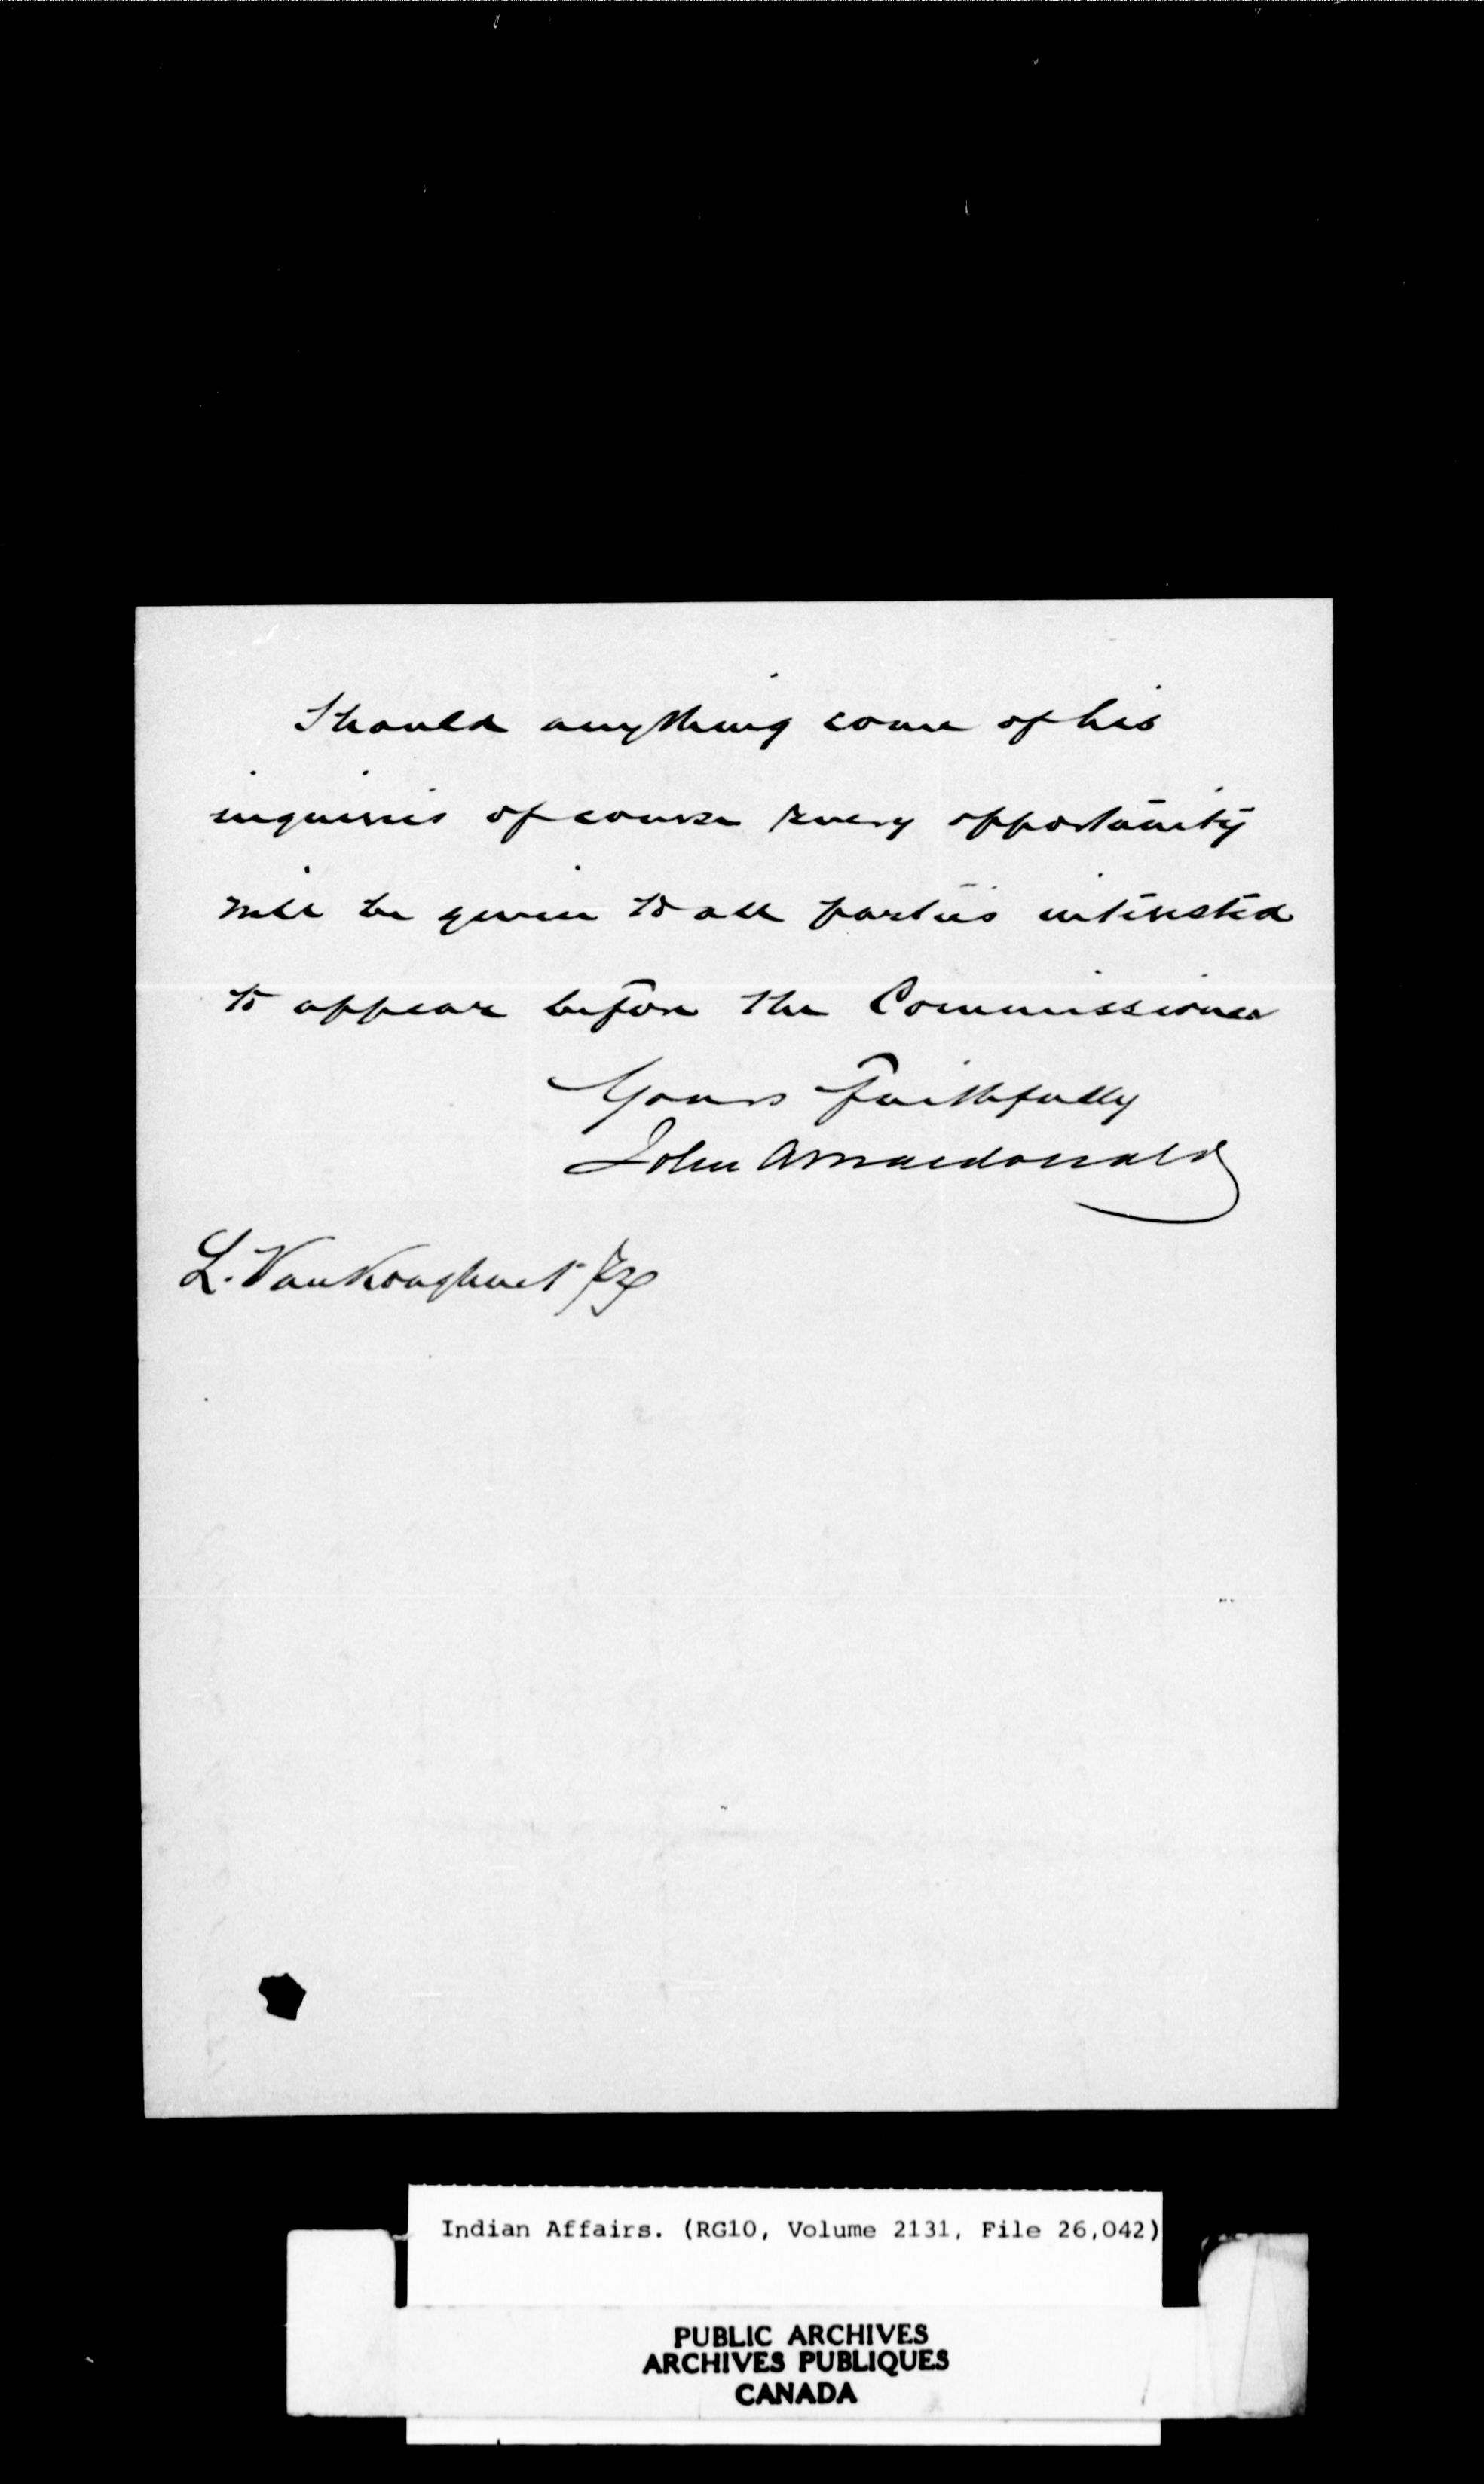 Should anything come of his
inquiries of course every opportunity
will be given to all parties interested
to appear before the Commissioner
Yours faithfully
John A Macdonald
L. VanKoughnet Esq
Indian Affairs. (RG10, Volume 2131, File 26,042)
PUBLIC ARCHIVES
ARCHIVES PUBLIQUES
CANADA